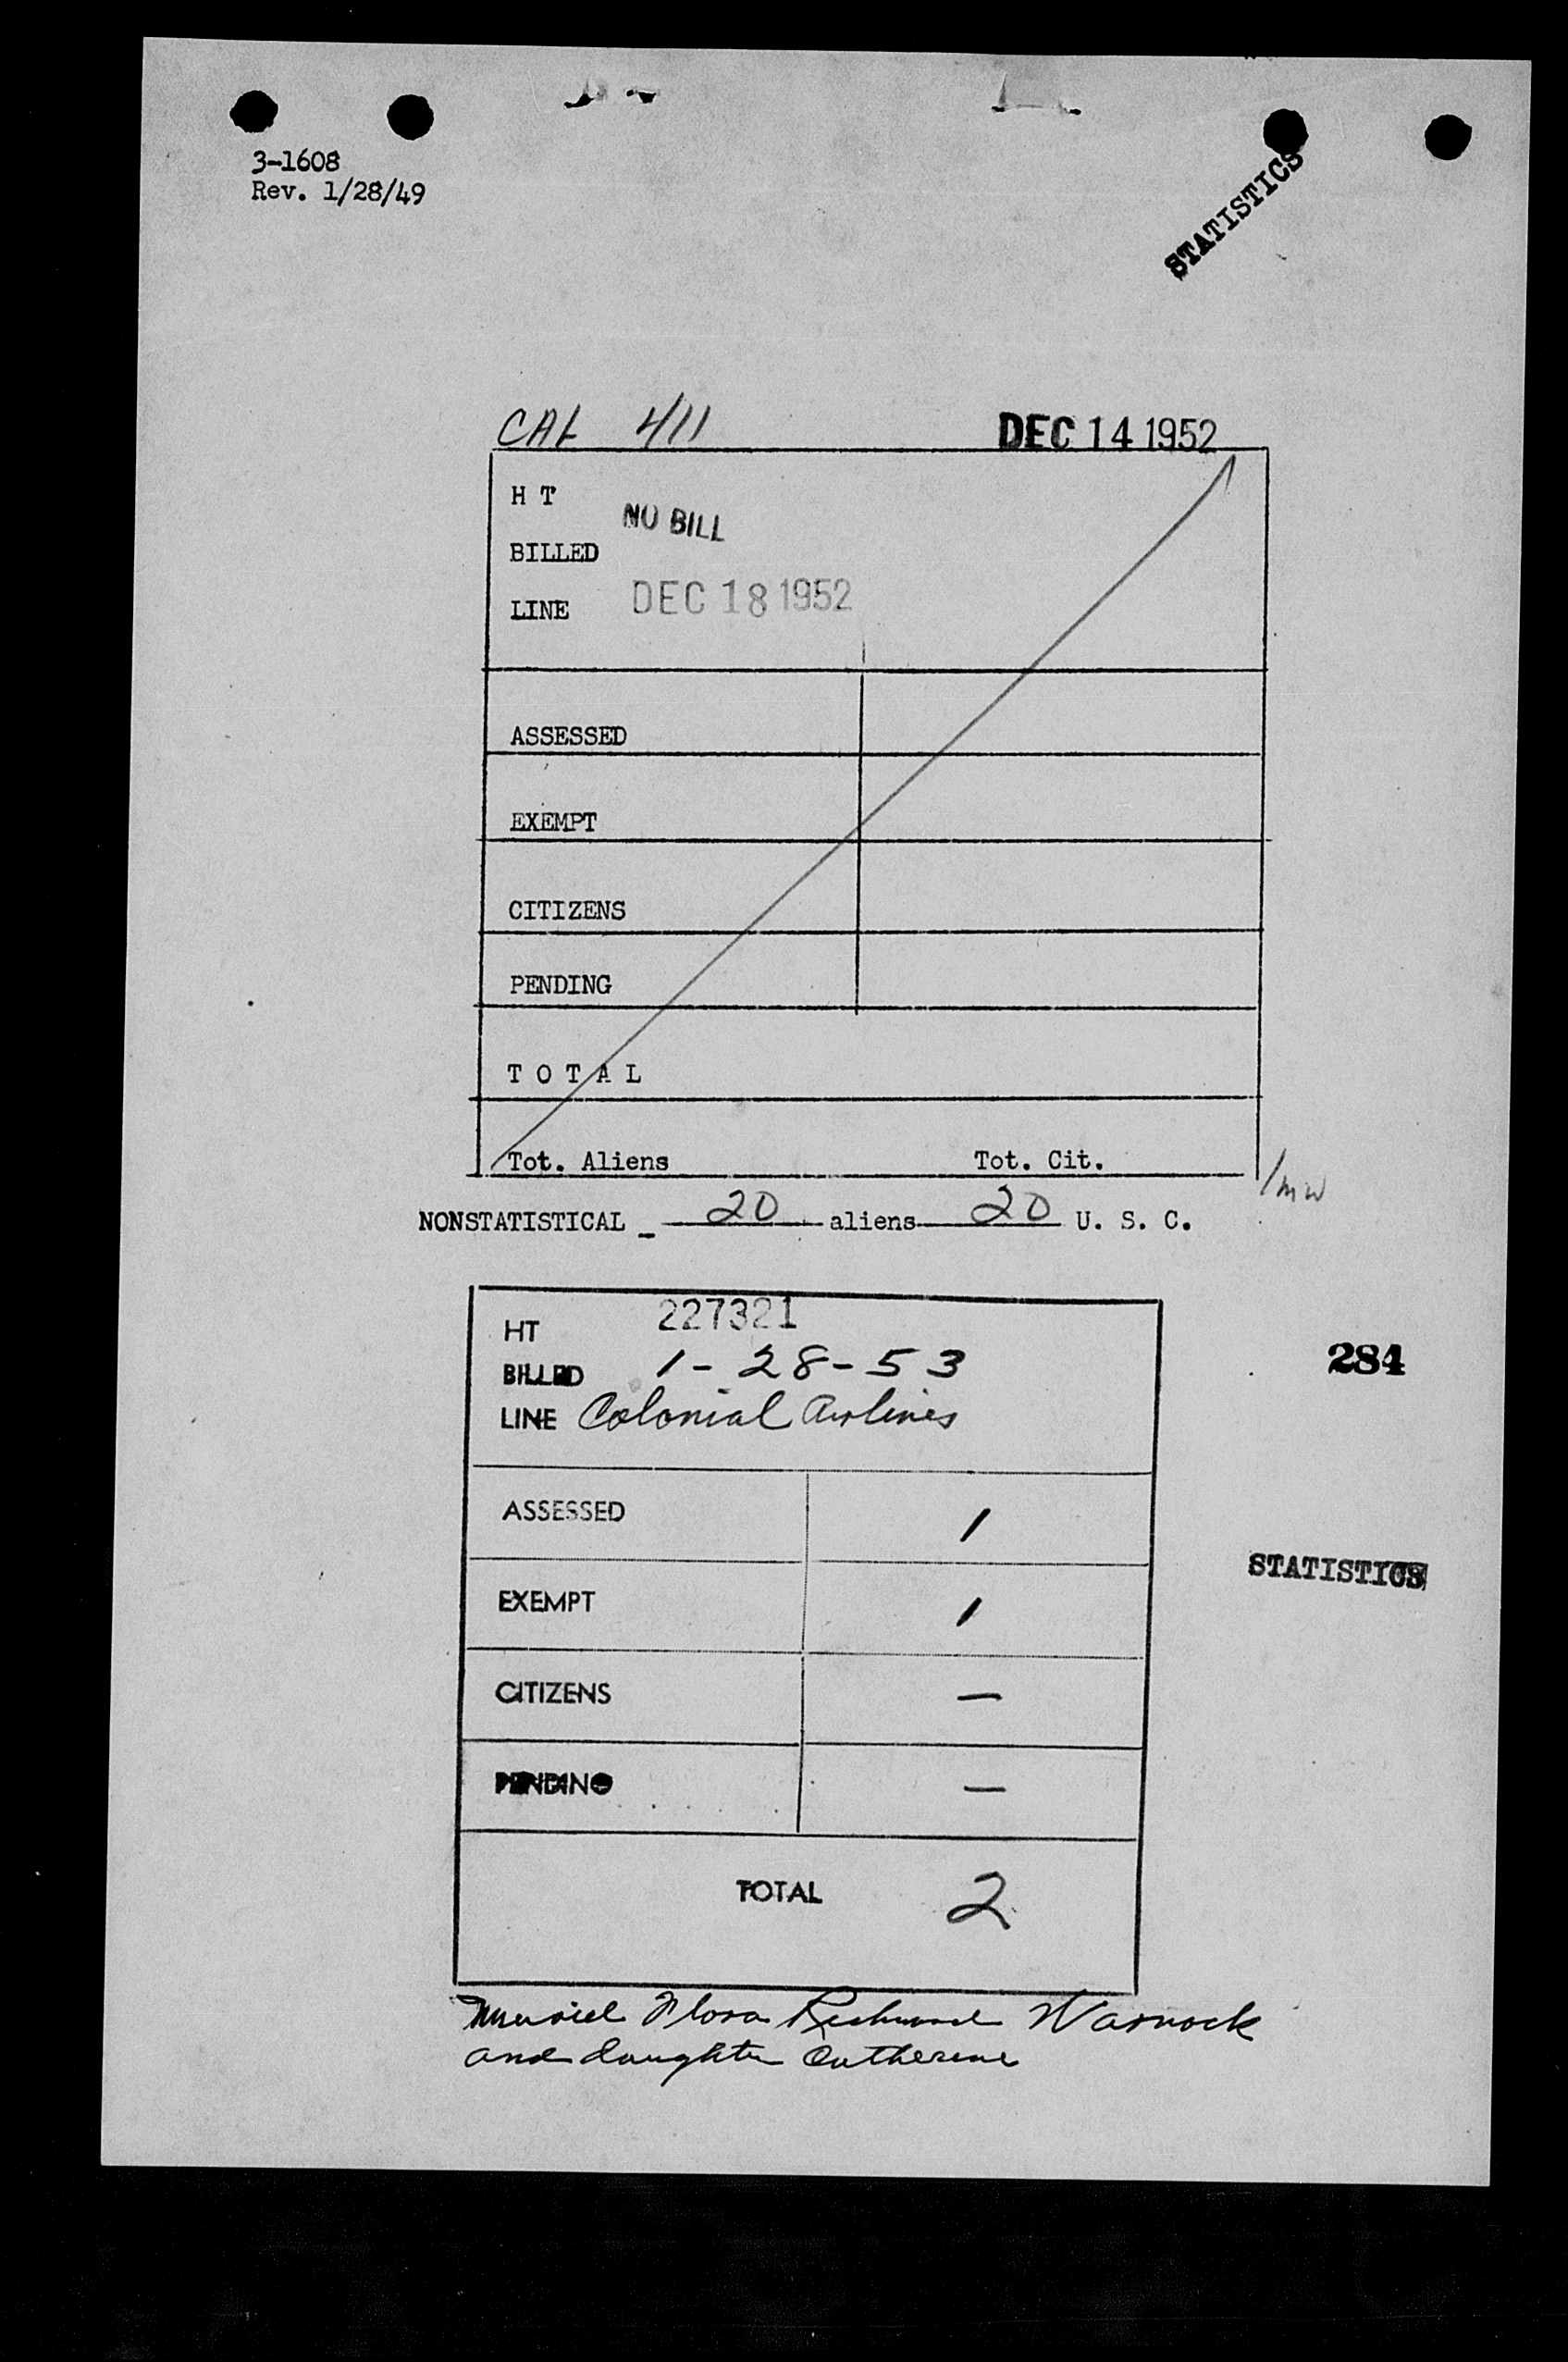 3-1608
Rev. 1/28/49
STATISTICS
CAL 411 DEC 14 1952
H T
NO BILL
BILLED
LINE DEC 18 1952
ASSESSED
EXEMPT
CITIZENS
PENDING
T O T A L
Tot. Aliens Tot. Cit.
/mw
NONSTATISTICAL - 20 aliens 20 U. S. C.
HT 227321
BILLED 1-28-53
284
LINE Colonial Airlines
ASSESSED 1
STATISTICS
EXEMPT 1
CITIZENS —
PENDING —
TOTAL 2
Muriel Flora Richmond Warnock
and daughter Catherine